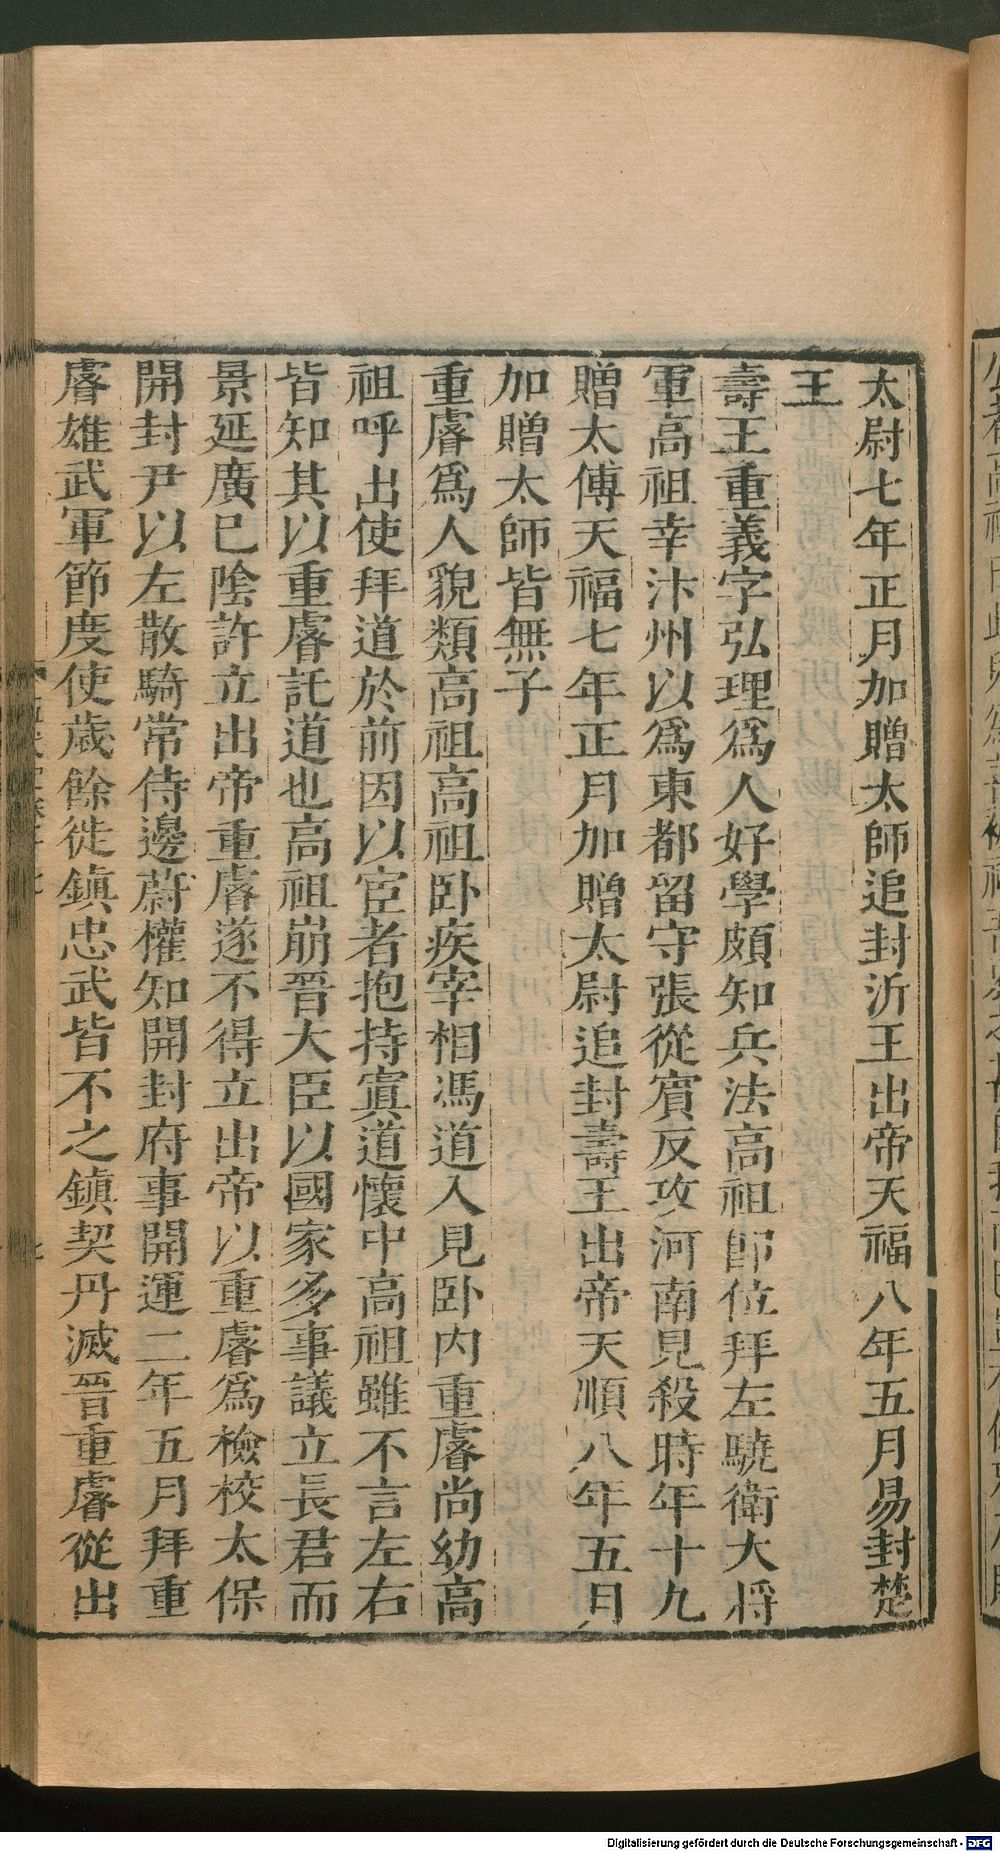 太尉七年正月加贈太師追封沂王出帝天福八年五月易封楚
王
壽王重義字弘理爲人好學頗知兵法高祖卽位拜左驍衛大將
軍高祖幸汴州以爲東都留守張從賓反攻河南見殺時年十九
贈太傅天福七年正月加贈太尉追封壽王出帝天順八年五日
加贈太師皆無子
重睿爲人貌類高祖高祖卧疾宰相馮道入見卧内重睿尚幼高
祖呼出使拜道於前因以宦者抱持寘道懷中高祖雖不言左右
皆知其以重睿託道也高祖崩晉大臣以國家多事議立長君而
景延廣已陰許立出帝重睿遂不得立出帝以重睿爲檢校太保
開封尹以左散騎常侍邊蔚權知開封府事開運二年五月拜重
睿雄武軍節度使歲餘徙鎮忠武皆不之鎮契丹滅晉重睿從出
Digitalisierung gefördert durch die Deutsche Forschungsgemeinschaft - DFG